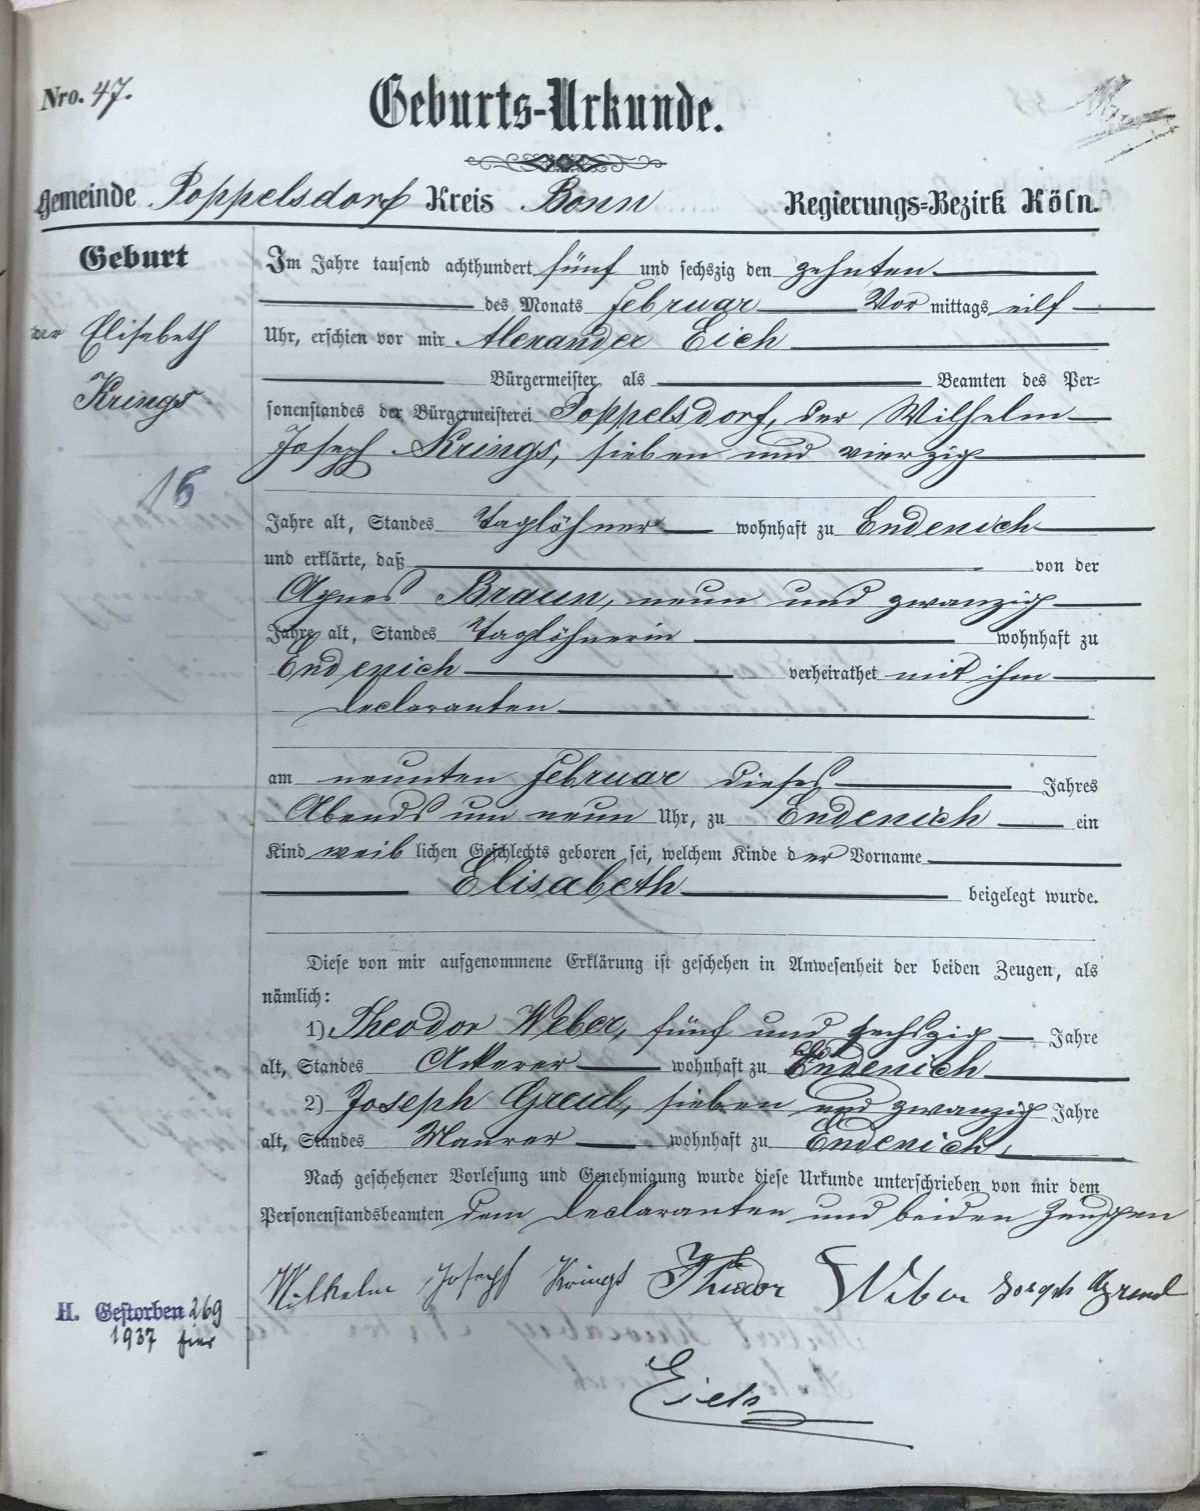 Nro. 47.
Geburts-Urkunde.
Gemeinde Poppelsdorf Kreis Bonn Regierungs-Bezirk Köln.
Geburt
der Elisabeth
Krings
16
Im Jahre tausend achthundert fünf und sechszig den zehnten
des Monats Februar Vor mittags eilf
Uhr, erschien vor mir Alexander Eich
Bürgermeister als Beamten des Per-
sonenstandes der Bürgermeisterei Poppelsdorf, der Wilhelm
Joseph Krings, sieben und vierzig
Jahre alt, Standes Taglöhner wohnhaft zu Endenich
und erklärte, daß von der
Agnes Braun, neun und zwanzig
Jahre alt, Standes Taglöhnerin wohnhaft zu
Endenich verheirathet mit ihm
Declaranten
am neunten Februar dieses Jahres
Abends um neun Uhr, zu Endenich ein
Kind weib lichen Geschlechts geboren sei, welchem Kinde der Vorname
Elisabeth beigelegt wurde.
Diese von mir aufgenommene Erklärung ist geschehen in Anwesenheit der beiden Zeugen, als
nämlich:
1) Theodor Weber, fünf und sechszig Jahre
alt, Standes Ackerer wohnhaft zu Endenich
2) Joseph Greul, sieben und zwanzig Jahre
alt, Standes Maurer wohnhaft zu Endenich,
Nach geschehener Vorlesung und Genehmigung wurde diese Urkunde unterschrieben von mir dem
Personenstandsbeamten dem Declaranten und beiden Zeugen
Wilhelm Joseph Krings Theodor Weber Joseph Greul
H. Gestorben 269
1937 hier
Eich